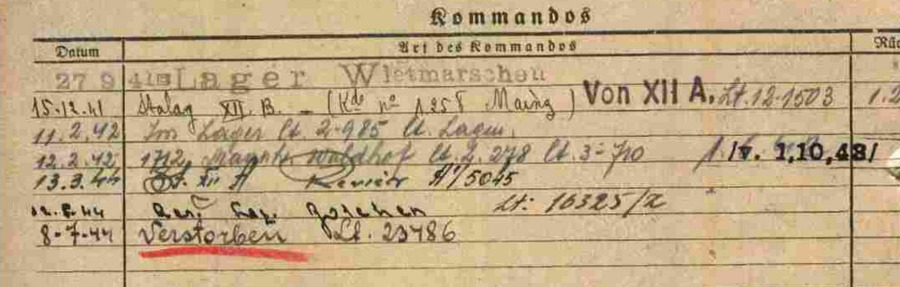 Kommandos
Datum Art des Kommandos Rü
27 9 41 Lager Wietmarschen
15.12.41 Stalag XII B. - (Kdo no 1258 Mainz) Von XII A. Lt. 12-1503 1.2
11.2.42 Im Lager lt. 2-985 lt. Lager.
12.2.42 1712, Waldhof lt. 2.278 lt. 3-710 /v. 1,10,43/
13.3.44 St. XII A Revier A/5045
44 Res. Laz. Lt: 16325/
8-7-44 Verstorben Lt. 23486